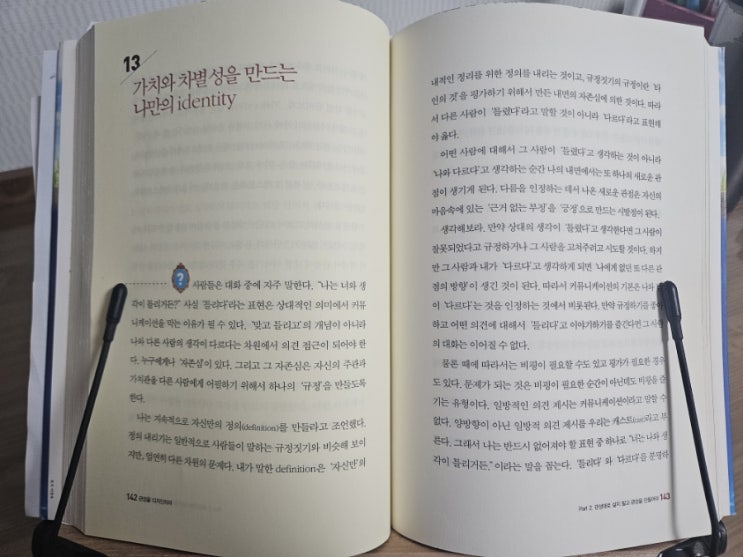 13
가치와 차별성을 만드는
나만의 identity
?
사람들은 대화 중에 자주 말한다. "나는 너와 생
각이 틀리거든?" 사실 '틀리다'라는 표현은 상대적인 의미에서 커뮤
니케이션을 막는 이유가 될 수 있다. '맞고 틀리고'의 개념이 아니라
나와 다른 사람의 생각이 다르다는 차원에서 의견 접근이 되어야 한
다. 누구에게나 '자존심'이 있다. 그리고 그 자존심은 자신의 주관과
가치관을 다른 사람에게 어필하기 위해서 하나의 '규정'을 만들도록
한다.
나는 지속적으로 자신만의 정의(definition)를 만들라고 조언했다.
정의 내리기는 일반적으로 사람들이 말하는 규정짓기와 비슷해 보이
지만, 엄연히 다른 차원의 문제다. 내가 말한 definition은 '자신만'의
142
내적인 정리를 위한 정의를 내리는 것이고, 규정짓기의 규정이란 '타
인의 것'을 평가하기 위해서 만든 내면의 자존심에 의한 것이다. 따라
서 다른 사람이 '틀렸다'라고 말할 것이 아니라 '다르다'라고 표현해
야 옳다.
어떤 사람에 대해서 그 사람이 '틀렸다'고 생각하는 것이 아니라
'나와 다르다'고 생각하는 순간 나의 내면에서는 또 하나의 새로운 관
점이 생기게 된다. 다름을 인정하는 데서 나온 새로운 관점은 자신의
마음속에 있는 '근거 없는 부정'을 '긍정'으로 만드는 시발점이 된다.
생각해보라. 만약 상대의 생각이 '틀렸다'고 생각한다면 그 사람이
잘못되었다고 규정하거나 그 사람을 고쳐주려고 시도할 것이다. 하지
만 그 사람과 내가 '다르다'고 생각하게 되면 '나에게 없던 또 다른 관
점의 방향'이 생긴 것이 된다. 따라서 커뮤니케이션의 기본은 나와
이 '다르다'는 것을 인정하는 것에서 비롯된다. 만약 규정하기를 좋아
하고 어떤 의견에 대해서 '틀리다'고 이야기하기를 즐긴다면 그 사람
의 대화는 이어질 수 없다.
물론 때에 따라서는 비평이 필요할 수도 있고 평가가 필요한 경우
도 있다. 문제가 되는 것은 비평이 필요한 순간이 아닌데도 비평을 즐
기는 유형이다. 일방적인 의견 제시는 커뮤니케이션이라고 말할 수
없다. 양방향이 아닌 일방적 의견 제시를 우리는 캐스트(cast)라고 부
른다. 그래서 나는 반드시 없어져야 할 표현 중 하나로 "너는 나와 생
각이 틀리거든."이라는 말을 꼽는다. '틀리다'와 '다르다'를 분명하
Part 2. 143